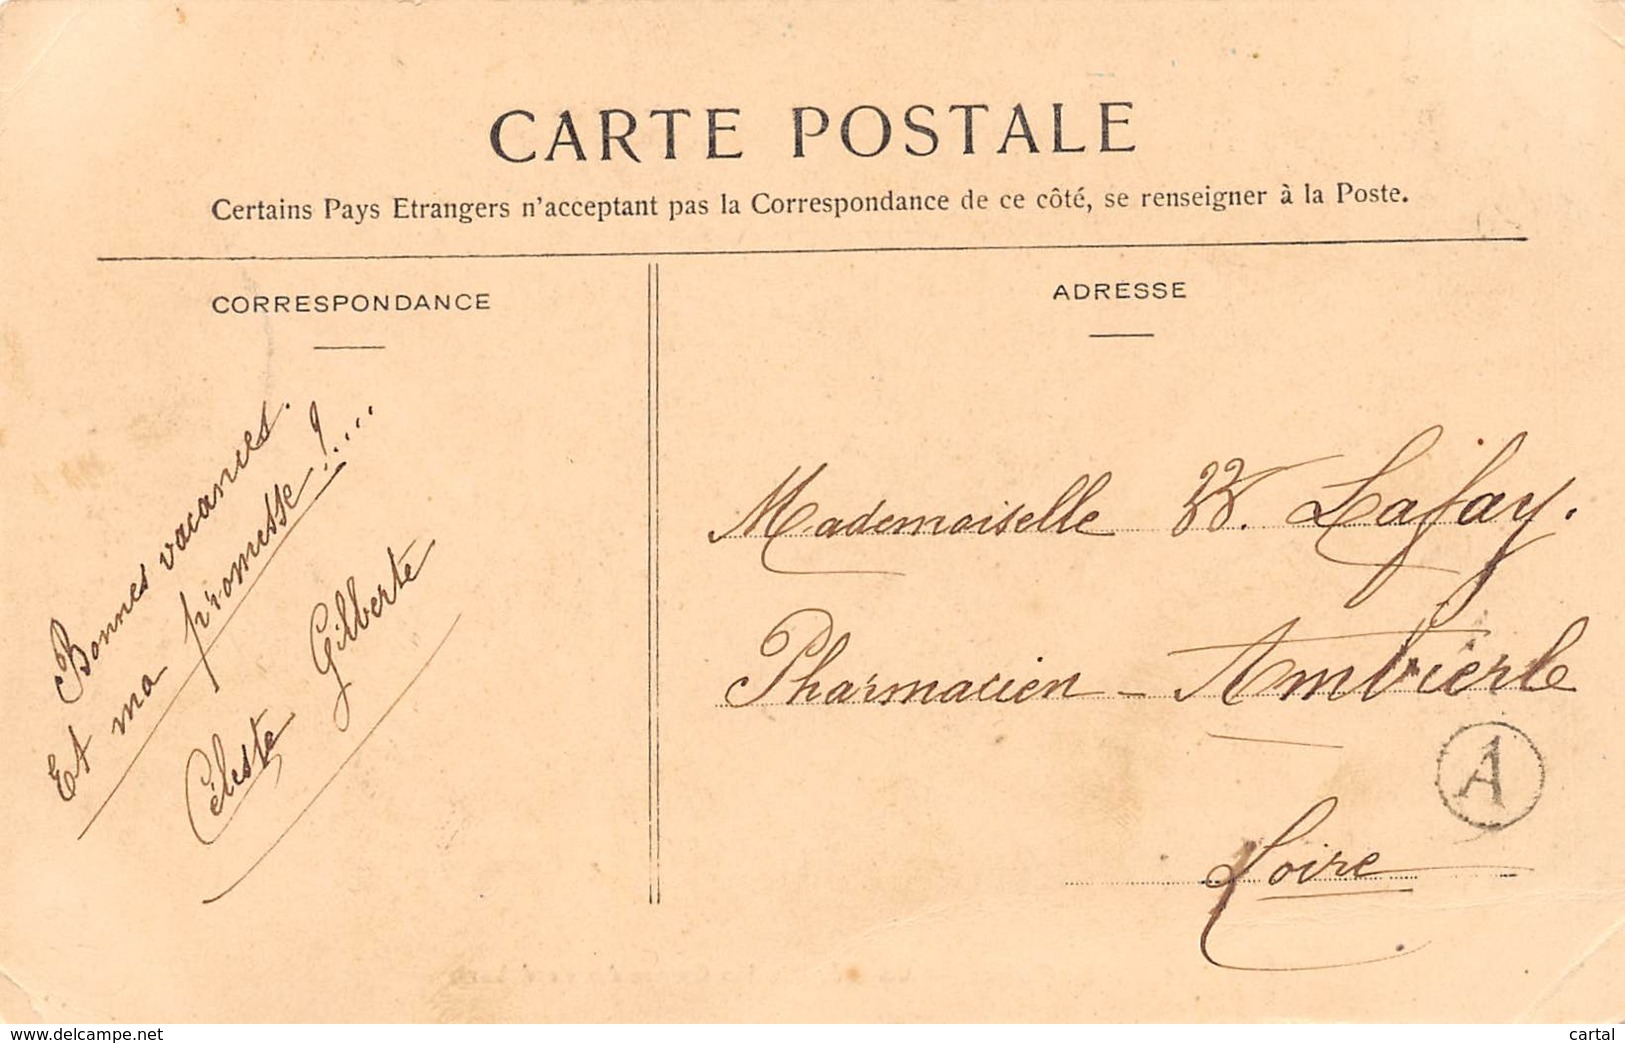 CARTE POSTALE
Certains Pays Etrangers n'acceptant pas la Correspondance de ce côté, se renseigner à la Poste.
CORRESPONDANCE
Bonnes vacances.
Et ma promesse !....
Céleste Gilberte
ADRESSE
Mademoiselle Lafay.
Pharmacien - Ambierle
A
Loire
www.delcampe.net
cartal